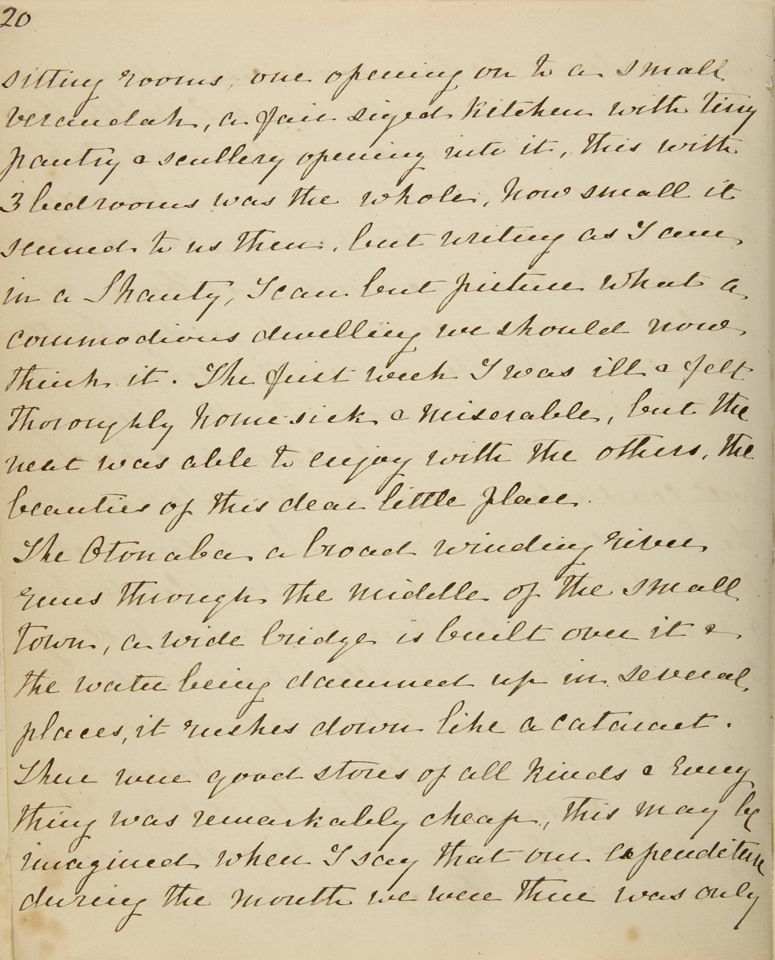 20
sitting rooms, one opening on to a small
verandah, a fair sized kitchen with tiny
pantry & scullery opening into it, this with
3 bedrooms was the whole, how small it
seemed to us then, but writing as I am,
in a Shanty, I can but picture what a
commodious dwelling we should now
think it. The first week I was ill & felt
thoroughly home sick & miserable, but the
next was able to enjoy with the others, the
beauties of this dear little place.
The Otonaba a broad winding river
runs through the middle of the small
town, a wide bridge is built over it &
the water being dammed up in several
places, it rushes down like a cataract.
There were good stores of all kinds & every
thing was remarkably cheap, this may be
imagined when I say that our expenditure
during the month we were there was only